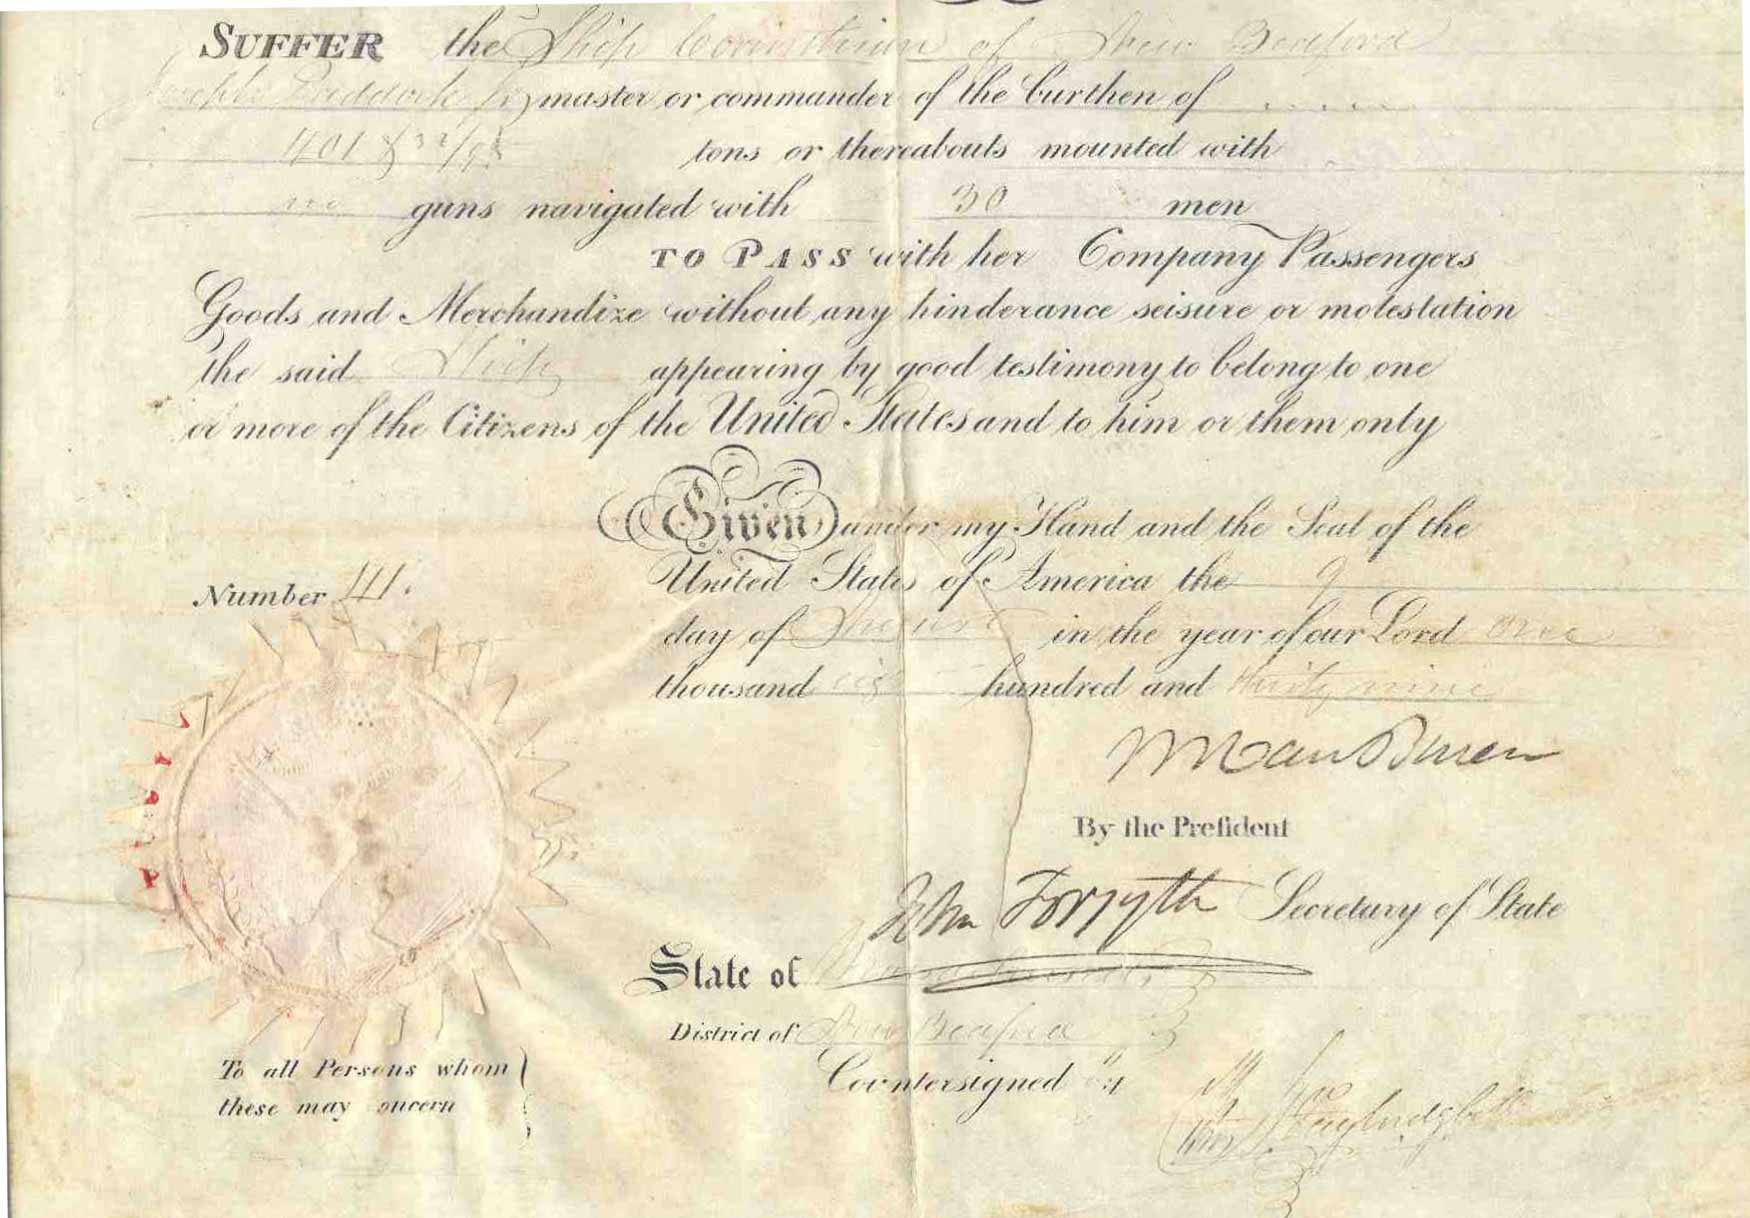 SUFFER the Ship Corinthian of New Bedford
Paddock master or commander of the burthen of
401 & 32/95 tons or thereabouts mounted with
no guns navigated with 30 men
TO PASS with her Company Passengers
Goods and Merchandize without any hinderance seisure or molestation
the said Ship appearing by good testimony to belong to one
or more of the Citizens of the United States and to him or them only
Given under my Hand and the Seal of the
United States of America the 9
Number 141.
day of in the year of our Lord one
thousand hundred and thirty nine
M Van Buren
By the Preſident
John Forsyth Secretary of State
State of
District of New Bedford
To all Persons whom
these may oncern
Countersigned by